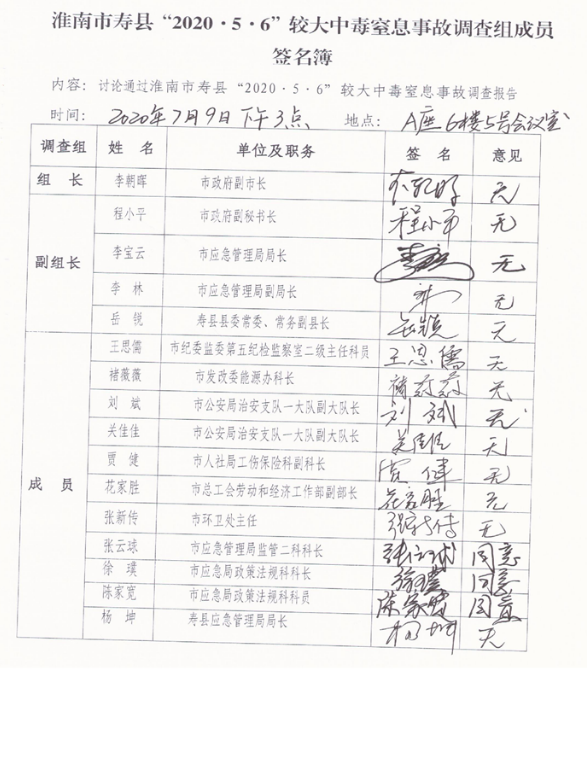 淮南市寿县“2020·5·6”较大中毒窒息事故调查组成员
签名簿
内容：讨论通过淮南市寿县“2020·5·6”较大中毒窒息事故调查报告
时间：2020年7月9日下午3点 地点：A座6楼5号会议室
调查组 姓 名 单位及职务 签 名 意见
组 长 李朝晖 市政府副市长 李朝晖 无
程小平 市政府副秘书长 程小平 无
副组长 李宝云 市应急管理局局长 无
李 林 市应急管理局副局长 无
岳 锐 寿县县委常委、常务副县长 岳锐 无
王思儒 市纪委监委第五纪检监察室二级主任科员 王思儒 无
褚薇薇 市发改委能源办科长 褚薇薇 无
刘 斌 市公安局治安支队一大队副大队长 刘斌 无
关佳佳 市公安局治安支队一大队副大队长 关佳佳 无
贾 健 市人社局工伤保险科副科长 贾健 无
成 员 花家胜 市总工会劳动和经济工作部副部长 花家胜 无
张新传 市环卫处主任 张新传 无
张云球 市应急管理局监管二科科长 张云球 同意
徐 璞 市应急局政策法规科科长 徐璞 同意
陈家宽 市应急局政策法规科科员 陈家宽 同意
杨 坤 寿县应急管理局局长 杨坤 无